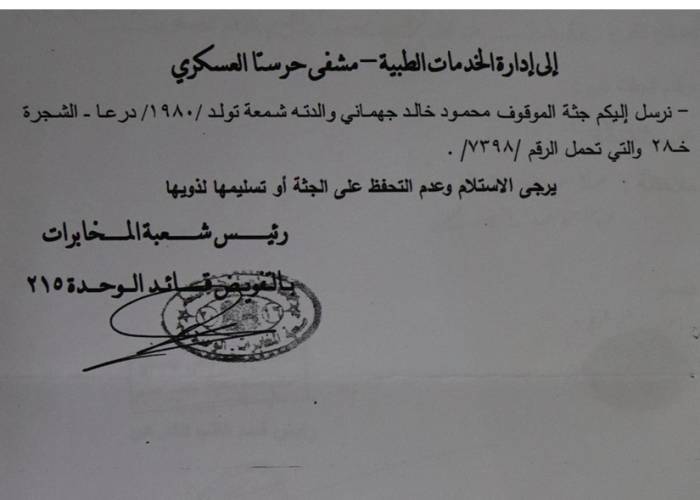 إلى إدارة الخدمات الطبية – مشفى حرستا العسكري
- نرسل إليكم جثة الموقوف محمود خالد جهماني والدته شمعة تولد /١٩٨٠/ درعا - الشجرة
خـ٢٨ والتي تحمل الرقم /٧٣٩٨/ .
يرجى الاستلام وعدم التحفظ على الجثة أو تسليمها لذويها
رئيس شعبة المخابرات
بالتفويض قائد الوحدة ٢١٥